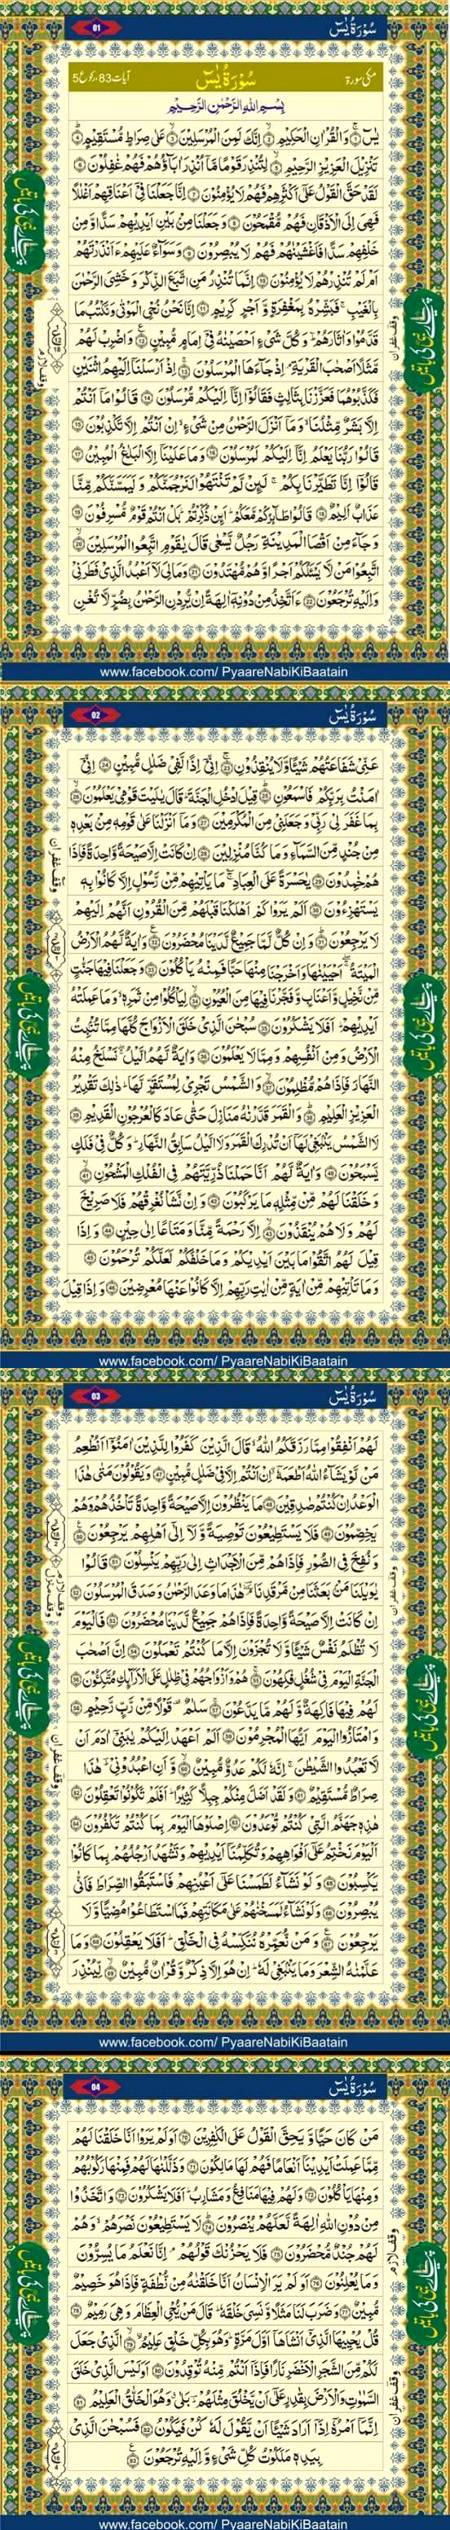 01 سُوْرَةُ يٰسٓ
مکی سورۃ سُوْرَةُ يٰسٓ آیات 83، رکوع 5
بِسْمِ اللّٰهِ الرَّحْمٰنِ الرَّحِيْمِ
يٰسٓ ۝۱ وَالْقُرْاٰنِ الْحَكِيْمِ ۝۲ اِنَّكَ لَمِنَ الْمُرْسَلِيْنَ ۝۳ عَلٰى صِرَاطٍ مُّسْتَقِيْمٍ ۝۴
تَنْزِيْلَ الْعَزِيْزِ الرَّحِيْمِ ۝۵ لِتُنْذِرَ قَوْمًا مَّاۤ اُنْذِرَ اٰبَآؤُهُمْ فَهُمْ غٰفِلُوْنَ ۝۶
لَقَدْ حَقَّ الْقَوْلُ عَلٰۤى اَكْثَرِهِمْ فَهُمْ لَا يُؤْمِنُوْنَ ۝۷ اِنَّا جَعَلْنَا فِيْۤ اَعْنَاقِهِمْ اَغْلٰلًا
فَهِىَ اِلَى الْاَذْقَانِ فَهُمْ مُّقْمَحُوْنَ ۝۸ وَجَعَلْنَا مِنْۢ بَيْنِ اَيْدِيْهِمْ سَدًّا وَّمِنْ
خَلْفِهِمْ سَدًّا فَاَغْشَيْنٰهُمْ فَهُمْ لَا يُبْصِرُوْنَ ۝۹ وَسَوَآءٌ عَلَيْهِمْ ءَاَنْذَرْتَهُمْ
اَمْ لَمْ تُنْذِرْهُمْ لَا يُؤْمِنُوْنَ ۝۱۰ اِنَّمَا تُنْذِرُ مَنِ اتَّبَعَ الذِّكْرَ وَخَشِىَ الرَّحْمٰنَ
بِالْغَيْبِ ۚ فَبَشِّرْهُ بِمَغْفِرَةٍ وَّاَجْرٍ كَرِيْمٍ ۝۱۱ اِنَّا نَحْنُ نُحْىِ الْمَوْتٰى وَنَكْتُبُ مَا
قَدَّمُوْا وَاٰثَارَهُمْ ۚ وَكُلَّ شَىْءٍ اَحْصَيْنٰهُ فِيْۤ اِمَامٍ مُّبِيْنٍ ۝۱۲ وَاضْرِبْ لَهُمْ
مَّثَلًا اَصْحٰبَ الْقَرْيَةِ ۘ اِذْ جَآءَهَا الْمُرْسَلُوْنَ ۝۱۳ اِذْ اَرْسَلْنَاۤ اِلَيْهِمُ اثْنَيْنِ
فَكَذَّبُوْهُمَا فَعَزَّزْنَا بِثَالِثٍ فَقَالُوْۤا اِنَّاۤ اِلَيْكُمْ مُّرْسَلُوْنَ ۝۱۴ قَالُوْا مَاۤ اَنْتُمْ
اِلَّا بَشَرٌ مِّثْلُنَا ۙ وَمَاۤ اَنْزَلَ الرَّحْمٰنُ مِنْ شَىْءٍ ۙ اِنْ اَنْتُمْ اِلَّا تَكْذِبُوْنَ ۝۱۵
قَالُوْا رَبُّنَا يَعْلَمُ اِنَّاۤ اِلَيْكُمْ لَمُرْسَلُوْنَ ۝۱۶ وَمَا عَلَيْنَاۤ اِلَّا الْبَلٰغُ الْمُبِيْنُ ۝۱۷
قَالُوْۤا اِنَّا تَطَيَّرْنَا بِكُمْ ۚ لَئِنْ لَّمْ تَنْتَهُوْا لَنَرْجُمَنَّكُمْ وَلَيَمَسَّنَّكُمْ مِّنَّا
عَذَابٌ اَلِيْمٌ ۝۱۸ قَالُوْا طَآئِرُكُمْ مَّعَكُمْ ؕ اَئِنْ ذُكِّرْتُمْ ؕ بَلْ اَنْتُمْ قَوْمٌ مُّسْرِفُوْنَ ۝۱۹
وَجَآءَ مِنْ اَقْصَا الْمَدِيْنَةِ رَجُلٌ يَّسْعٰى قَالَ يٰقَوْمِ اتَّبِعُوا الْمُرْسَلِيْنَ ۝۲۰
اتَّبِعُوْا مَنْ لَّا يَسْئَلُكُمْ اَجْرًا وَّهُمْ مُّهْتَدُوْنَ ۝۲۱ وَمَا لِىَ لَاۤ اَعْبُدُ الَّذِيْ فَطَرَنِيْ
وَاِلَيْهِ تُرْجَعُوْنَ ۝۲۲ ءَاَتَّخِذُ مِنْ دُوْنِهٖۤ اٰلِهَةً اِنْ يُّرِدْنِ الرَّحْمٰنُ بِضُرٍّ لَّا تُغْنِ
پیارے نبی کی باتیں
www.facebook.com/ PyaareNabiKiBaatain
02 سُوْرَةُ يٰسٓ
عَنِّيْ شَفَاعَتُهُمْ شَيْئًا وَّلَا يُنْقِذُوْنِ ۝۲۳ اِنِّيْۤ اِذًا لَّفِيْ ضَلٰلٍ مُّبِيْنٍ ۝۲۴ اِنِّيْۤ
اٰمَنْتُ بِرَبِّكُمْ فَاسْمَعُوْنِ ۝۲۵ قِيْلَ ادْخُلِ الْجَنَّةَ ؕ قَالَ يٰلَيْتَ قَوْمِيْ يَعْلَمُوْنَ ۝۲۶
بِمَا غَفَرَ لِيْ رَبِّيْ وَجَعَلَنِيْ مِنَ الْمُكْرَمِيْنَ ۝۲۷ وَمَاۤ اَنْزَلْنَا عَلٰى قَوْمِهٖ مِنْۢ بَعْدِهٖ
مِنْ جُنْدٍ مِّنَ السَّمَآءِ وَمَا كُنَّا مُنْزِلِيْنَ ۝۲۸ اِنْ كَانَتْ اِلَّا صَيْحَةً وَّاحِدَةً فَاِذَا
هُمْ خٰمِدُوْنَ ۝۲۹ يٰحَسْرَةً عَلَى الْعِبَادِ ۚ مَا يَاْتِيْهِمْ مِّنْ رَّسُوْلٍ اِلَّا كَانُوْا بِهٖ
يَسْتَهْزِءُوْنَ ۝۳۰ اَلَمْ يَرَوْا كَمْ اَهْلَكْنَا قَبْلَهُمْ مِّنَ الْقُرُوْنِ اَنَّهُمْ اِلَيْهِمْ
لَا يَرْجِعُوْنَ ۝۳۱ وَاِنْ كُلٌّ لَّمَّا جَمِيْعٌ لَّدَيْنَا مُحْضَرُوْنَ ۝۳۲ وَاٰيَةٌ لَّهُمُ الْاَرْضُ
الْمَيْتَةُ ۖ اَحْيَيْنٰهَا وَاَخْرَجْنَا مِنْهَا حَبًّا فَمِنْهُ يَاْكُلُوْنَ ۝۳۳ وَجَعَلْنَا فِيْهَا جَنّٰتٍ
مِّنْ نَّخِيْلٍ وَّاَعْنَابٍ وَّفَجَّرْنَا فِيْهَا مِنَ الْعُيُوْنِ ۝۳۴ لِيَاْكُلُوْا مِنْ ثَمَرِهٖ ۙ وَمَا عَمِلَتْهُ
اَيْدِيْهِمْ ؕ اَفَلَا يَشْكُرُوْنَ ۝۳۵ سُبْحٰنَ الَّذِيْ خَلَقَ الْاَزْوَاجَ كُلَّهَا مِمَّا تُنْۢبِتُ
الْاَرْضُ وَمِنْ اَنْفُسِهِمْ وَمِمَّا لَا يَعْلَمُوْنَ ۝۳۶ وَاٰيَةٌ لَّهُمُ الَّيْلُ ۖ نَسْلَخُ مِنْهُ
النَّهَارَ فَاِذَا هُمْ مُّظْلِمُوْنَ ۝۳۷ وَالشَّمْسُ تَجْرِيْ لِمُسْتَقَرٍّ لَّهَا ؕ ذٰلِكَ تَقْدِيْرُ
الْعَزِيْزِ الْعَلِيْمِ ۝۳۸ وَالْقَمَرَ قَدَّرْنٰهُ مَنَازِلَ حَتّٰى عَادَ كَالْعُرْجُوْنِ الْقَدِيْمِ ۝۳۹
لَا الشَّمْسُ يَنْۢبَغِيْ لَهَاۤ اَنْ تُدْرِكَ الْقَمَرَ وَلَا الَّيْلُ سَابِقُ النَّهَارِ ؕ وَكُلٌّ فِيْ فَلَكٍ
يَّسْبَحُوْنَ ۝۴۰ وَاٰيَةٌ لَّهُمْ اَنَّا حَمَلْنَا ذُرِّيَّتَهُمْ فِى الْفُلْكِ الْمَشْحُوْنِ ۝۴۱
وَخَلَقْنَا لَهُمْ مِّنْ مِّثْلِهٖ مَا يَرْكَبُوْنَ ۝۴۲ وَاِنْ نَّشَاْ نُغْرِقْهُمْ فَلَا صَرِيْخَ
لَهُمْ وَلَا هُمْ يُنْقَذُوْنَ ۝۴۳ اِلَّا رَحْمَةً مِّنَّا وَمَتَاعًا اِلٰى حِيْنٍ ۝۴۴ وَاِذَا
قِيْلَ لَهُمُ اتَّقُوْا مَا بَيْنَ اَيْدِيْكُمْ وَمَا خَلْفَكُمْ لَعَلَّكُمْ تُرْحَمُوْنَ ۝۴۵
وَمَا تَاْتِيْهِمْ مِّنْ اٰيَةٍ مِّنْ اٰيٰتِ رَبِّهِمْ اِلَّا كَانُوْا عَنْهَا مُعْرِضِيْنَ ۝۴۶ وَاِذَا قِيْلَ
پیارے نبی کی باتیں
www.facebook.com/ PyaareNabiKiBaatain
03 سُوْرَةُ يٰسٓ
لَهُمْ اَنْفِقُوْا مِمَّا رَزَقَكُمُ اللّٰهُ ۙ قَالَ الَّذِيْنَ كَفَرُوْا لِلَّذِيْنَ اٰمَنُوْۤا اَنُطْعِمُ
مَنْ لَّوْ يَشَآءُ اللّٰهُ اَطْعَمَهٗۤ ۖ اِنْ اَنْتُمْ اِلَّا فِيْ ضَلٰلٍ مُّبِيْنٍ ۝۴۷ وَيَقُوْلُوْنَ مَتٰى هٰذَا
الْوَعْدُ اِنْ كُنْتُمْ صٰدِقِيْنَ ۝۴۸ مَا يَنْظُرُوْنَ اِلَّا صَيْحَةً وَّاحِدَةً تَاْخُذُهُمْ وَهُمْ
يَخِصِّمُوْنَ ۝۴۹ فَلَا يَسْتَطِيْعُوْنَ تَوْصِيَةً وَّلَاۤ اِلٰۤى اَهْلِهِمْ يَرْجِعُوْنَ ۝۵۰
وَنُفِخَ فِى الصُّوْرِ فَاِذَا هُمْ مِّنَ الْاَجْدَاثِ اِلٰى رَبِّهِمْ يَنْسِلُوْنَ ۝۵۱ قَالُوْا
يٰوَيْلَنَا مَنْۢ بَعَثَنَا مِنْ مَّرْقَدِنَا ۘ هٰذَا مَا وَعَدَ الرَّحْمٰنُ وَصَدَقَ الْمُرْسَلُوْنَ ۝۵۲
اِنْ كَانَتْ اِلَّا صَيْحَةً وَّاحِدَةً فَاِذَا هُمْ جَمِيْعٌ لَّدَيْنَا مُحْضَرُوْنَ ۝۵۳ فَالْيَوْمَ
لَا تُظْلَمُ نَفْسٌ شَيْئًا وَّلَا تُجْزَوْنَ اِلَّا مَا كُنْتُمْ تَعْمَلُوْنَ ۝۵۴ اِنَّ اَصْحٰبَ
الْجَنَّةِ الْيَوْمَ فِيْ شُغُلٍ فٰكِهُوْنَ ۝۵۵ هُمْ وَاَزْوَاجُهُمْ فِيْ ظِلٰلٍ عَلَى الْاَرَآئِكِ مُتَّكِئُوْنَ ۝۵۶
لَهُمْ فِيْهَا فَاكِهَةٌ وَّلَهُمْ مَّا يَدَّعُوْنَ ۝۵۷ سَلٰمٌ ۟ قَوْلًا مِّنْ رَّبٍّ رَّحِيْمٍ ۝۵۸
وَامْتَازُوا الْيَوْمَ اَيُّهَا الْمُجْرِمُوْنَ ۝۵۹ اَلَمْ اَعْهَدْ اِلَيْكُمْ يٰبَنِيْۤ اٰدَمَ اَنْ
لَّا تَعْبُدُوا الشَّيْطٰنَ ۚ اِنَّهٗ لَكُمْ عَدُوٌّ مُّبِيْنٌ ۝۶۰ وَّاَنِ اعْبُدُوْنِيْ ؕ هٰذَا
صِرَاطٌ مُّسْتَقِيْمٌ ۝۶۱ وَلَقَدْ اَضَلَّ مِنْكُمْ جِبِلًّا كَثِيْرًا ؕ اَفَلَمْ تَكُوْنُوْا تَعْقِلُوْنَ ۝۶۲
هٰذِهٖ جَهَنَّمُ الَّتِيْ كُنْتُمْ تُوْعَدُوْنَ ۝۶۳ اِصْلَوْهَا الْيَوْمَ بِمَا كُنْتُمْ تَكْفُرُوْنَ ۝۶۴
اَلْيَوْمَ نَخْتِمُ عَلٰۤى اَفْوَاهِهِمْ وَتُكَلِّمُنَاۤ اَيْدِيْهِمْ وَتَشْهَدُ اَرْجُلُهُمْ بِمَا كَانُوْا
يَكْسِبُوْنَ ۝۶۵ وَلَوْ نَشَآءُ لَطَمَسْنَا عَلٰۤى اَعْيُنِهِمْ فَاسْتَبَقُوا الصِّرَاطَ فَاَنّٰى
يُبْصِرُوْنَ ۝۶۶ وَلَوْ نَشَآءُ لَمَسَخْنٰهُمْ عَلٰى مَكَانَتِهِمْ فَمَا اسْتَطَاعُوْا مُضِيًّا وَّلَا
يَرْجِعُوْنَ ۝۶۷ وَمَنْ نُّعَمِّرْهُ نُنَكِّسْهُ فِى الْخَلْقِ ؕ اَفَلَا يَعْقِلُوْنَ ۝۶۸ وَمَا
عَلَّمْنٰهُ الشِّعْرَ وَمَا يَنْۢبَغِيْ لَهٗ ؕ اِنْ هُوَ اِلَّا ذِكْرٌ وَّقُرْاٰنٌ مُّبِيْنٌ ۝۶۹ لِّيُنْذِرَ
پیارے نبی کی باتیں
www.facebook.com/ PyaareNabiKiBaatain
04 سُوْرَةُ يٰسٓ
مَنْ كَانَ حَيًّا وَّيَحِقَّ الْقَوْلُ عَلَى الْكٰفِرِيْنَ ۝۷۰ اَوَلَمْ يَرَوْا اَنَّا خَلَقْنَا لَهُمْ
مِّمَّا عَمِلَتْ اَيْدِيْنَاۤ اَنْعَامًا فَهُمْ لَهَا مٰلِكُوْنَ ۝۷۱ وَذَلَّلْنٰهَا لَهُمْ فَمِنْهَا رَكُوْبُهُمْ
وَمِنْهَا يَاْكُلُوْنَ ۝۷۲ وَلَهُمْ فِيْهَا مَنَافِعُ وَمَشَارِبُ ؕ اَفَلَا يَشْكُرُوْنَ ۝۷۳ وَاتَّخَذُوْا
مِنْ دُوْنِ اللّٰهِ اٰلِهَةً لَّعَلَّهُمْ يُنْصَرُوْنَ ۝۷۴ لَا يَسْتَطِيْعُوْنَ نَصْرَهُمْ ۙ وَهُمْ
لَهُمْ جُنْدٌ مُّحْضَرُوْنَ ۝۷۵ فَلَا يَحْزُنْكَ قَوْلُهُمْ ۘ اِنَّا نَعْلَمُ مَا يُسِرُّوْنَ
وَمَا يُعْلِنُوْنَ ۝۷۶ اَوَلَمْ يَرَ الْاِنْسَانُ اَنَّا خَلَقْنٰهُ مِنْ نُّطْفَةٍ فَاِذَا هُوَ خَصِيْمٌ
مُّبِيْنٌ ۝۷۷ وَضَرَبَ لَنَا مَثَلًا وَّنَسِىَ خَلْقَهٗ ؕ قَالَ مَنْ يُّحْىِ الْعِظَامَ وَهِىَ رَمِيْمٌ ۝۷۸
قُلْ يُحْيِيْهَا الَّذِيْۤ اَنْشَاَهَاۤ اَوَّلَ مَرَّةٍ ؕ وَهُوَ بِكُلِّ خَلْقٍ عَلِيْمٌ ۝۷۹ الَّذِيْ جَعَلَ
لَكُمْ مِّنَ الشَّجَرِ الْاَخْضَرِ نَارًا فَاِذَاۤ اَنْتُمْ مِّنْهُ تُوْقِدُوْنَ ۝۸۰ اَوَلَيْسَ الَّذِيْ خَلَقَ
السَّمٰوٰتِ وَالْاَرْضَ بِقٰدِرٍ عَلٰۤى اَنْ يَّخْلُقَ مِثْلَهُمْ ؕ بَلٰى ۗ وَهُوَ الْخَلّٰقُ الْعَلِيْمُ ۝۸۱
اِنَّمَاۤ اَمْرُهٗۤ اِذَاۤ اَرَادَ شَيْئًا اَنْ يَّقُوْلَ لَهٗ كُنْ فَيَكُوْنُ ۝۸۲ فَسُبْحٰنَ الَّذِيْ
بِيَدِهٖ مَلَكُوْتُ كُلِّ شَىْءٍ وَّاِلَيْهِ تُرْجَعُوْنَ ۝۸۳
پیارے نبی کی باتیں
www.facebook.com/ PyaareNabiKiBaatain